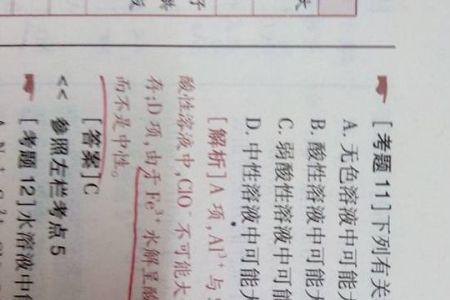 [考题 11]下列有关
A. 无色溶液中可能大
B. 酸性溶液中可能大
C. 弱酸性溶液中可能
D. 中性溶液中可能大
[解析]A 项,Al³⁺与
酸性溶液中,ClO⁻不可能大
存;D 项,由于 Fe³⁺水解呈酸
而不是中性。
[答案]C
<< 参照左栏考点 5
[考题 12]水溶液中